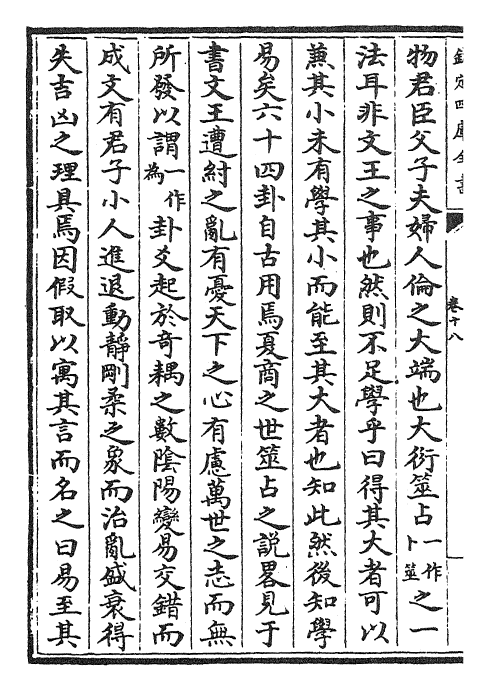 欽定四庫全書
卷十八
物君臣父子夫婦人倫之大端也大衍筮占一作卜筮之一
法耳非文王之事也然則不足學乎曰得其大者可以
蒹其小未有學其小而能至其大者也知此然後知學
易矣六十四卦自古用焉夏商之世筮占之說畧見于
書文王遭紂之亂有憂天下之心有慮萬世之志而無
所發以謂一作為卦爻起於竒耦之數陰陽變易交錯而
成文有君子小人進退動静剛柔之象而治亂盛衰得
失吉凶之理具焉因假取以寓其言而名之曰易至其